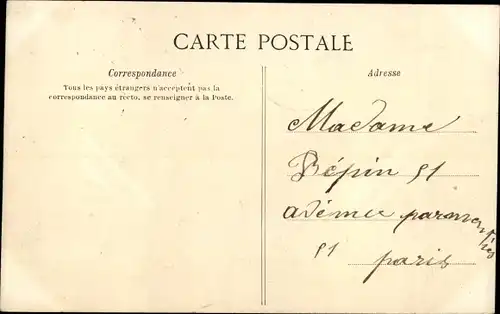 CARTE POSTALE
Correspondance
Tous les pays étrangers n'acceptent pas la
correspondance au recto, se renseigner à la Poste.
Adresse
Madame
Bépin 51
avenue parmentier
51 paris